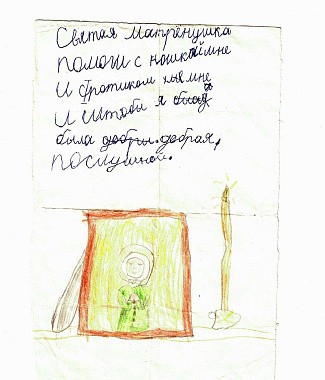 Святая Матренушка
помоги с ношкай мне
И братиком мне
И Штобы я
была добрая,
послушной.